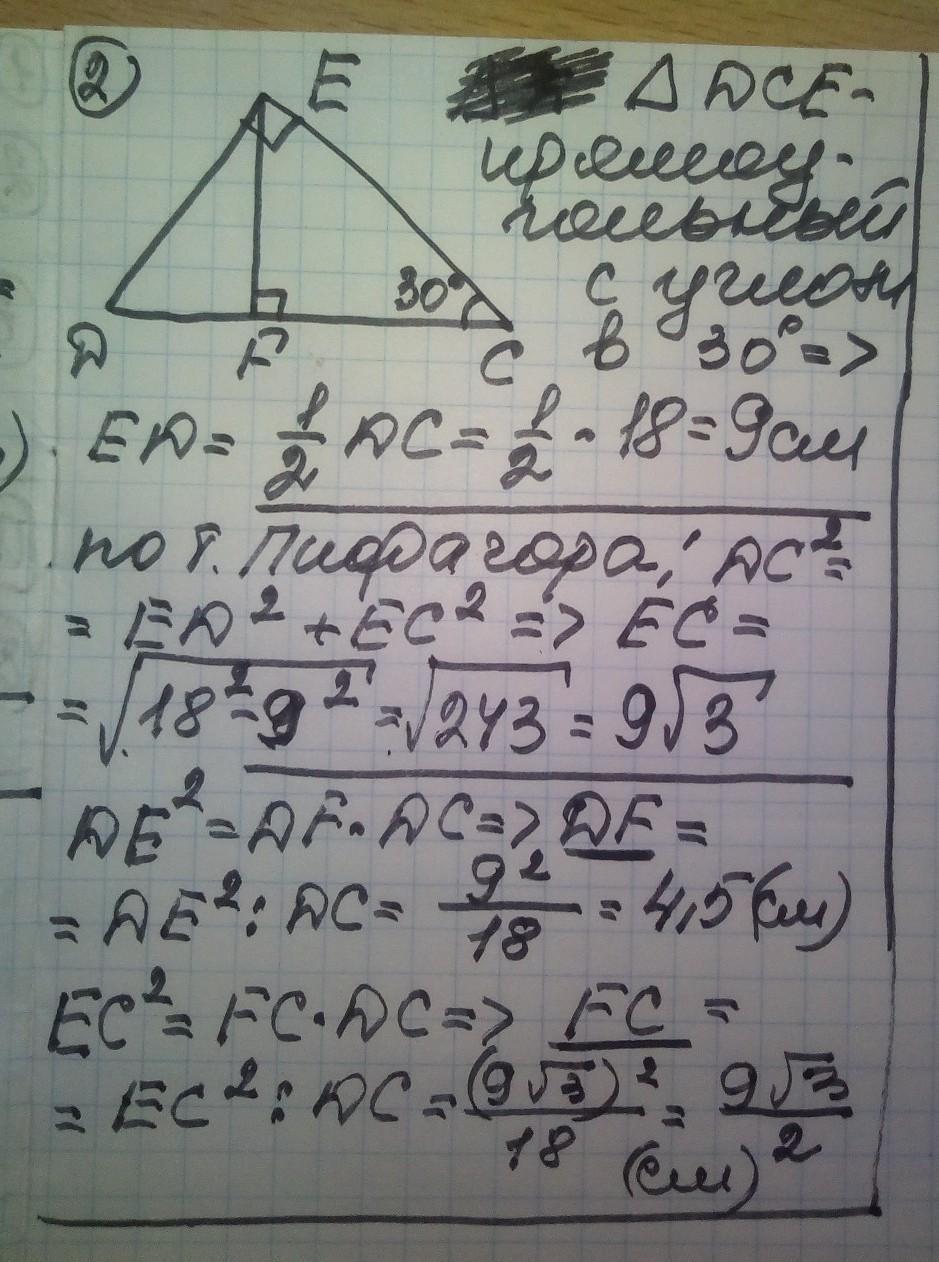 2
E
△ DCE-
прямоу-
гольный
с углом
30°
D F C
в 30° =>
ED = 1/2 DC = 1/2 · 18 = 9 см
по т. Пифагора: DC² =
= ED² + EC² => EC =
= √(18² - 9²) = √243 = 9√3
DE² = DF · DC => DF =
= DE² : DC = 9²/18 = 4,5 (см)
EC² = FC · DC => FC =
= EC² : DC = (9√3)²/18 = 9√3/2
(см)